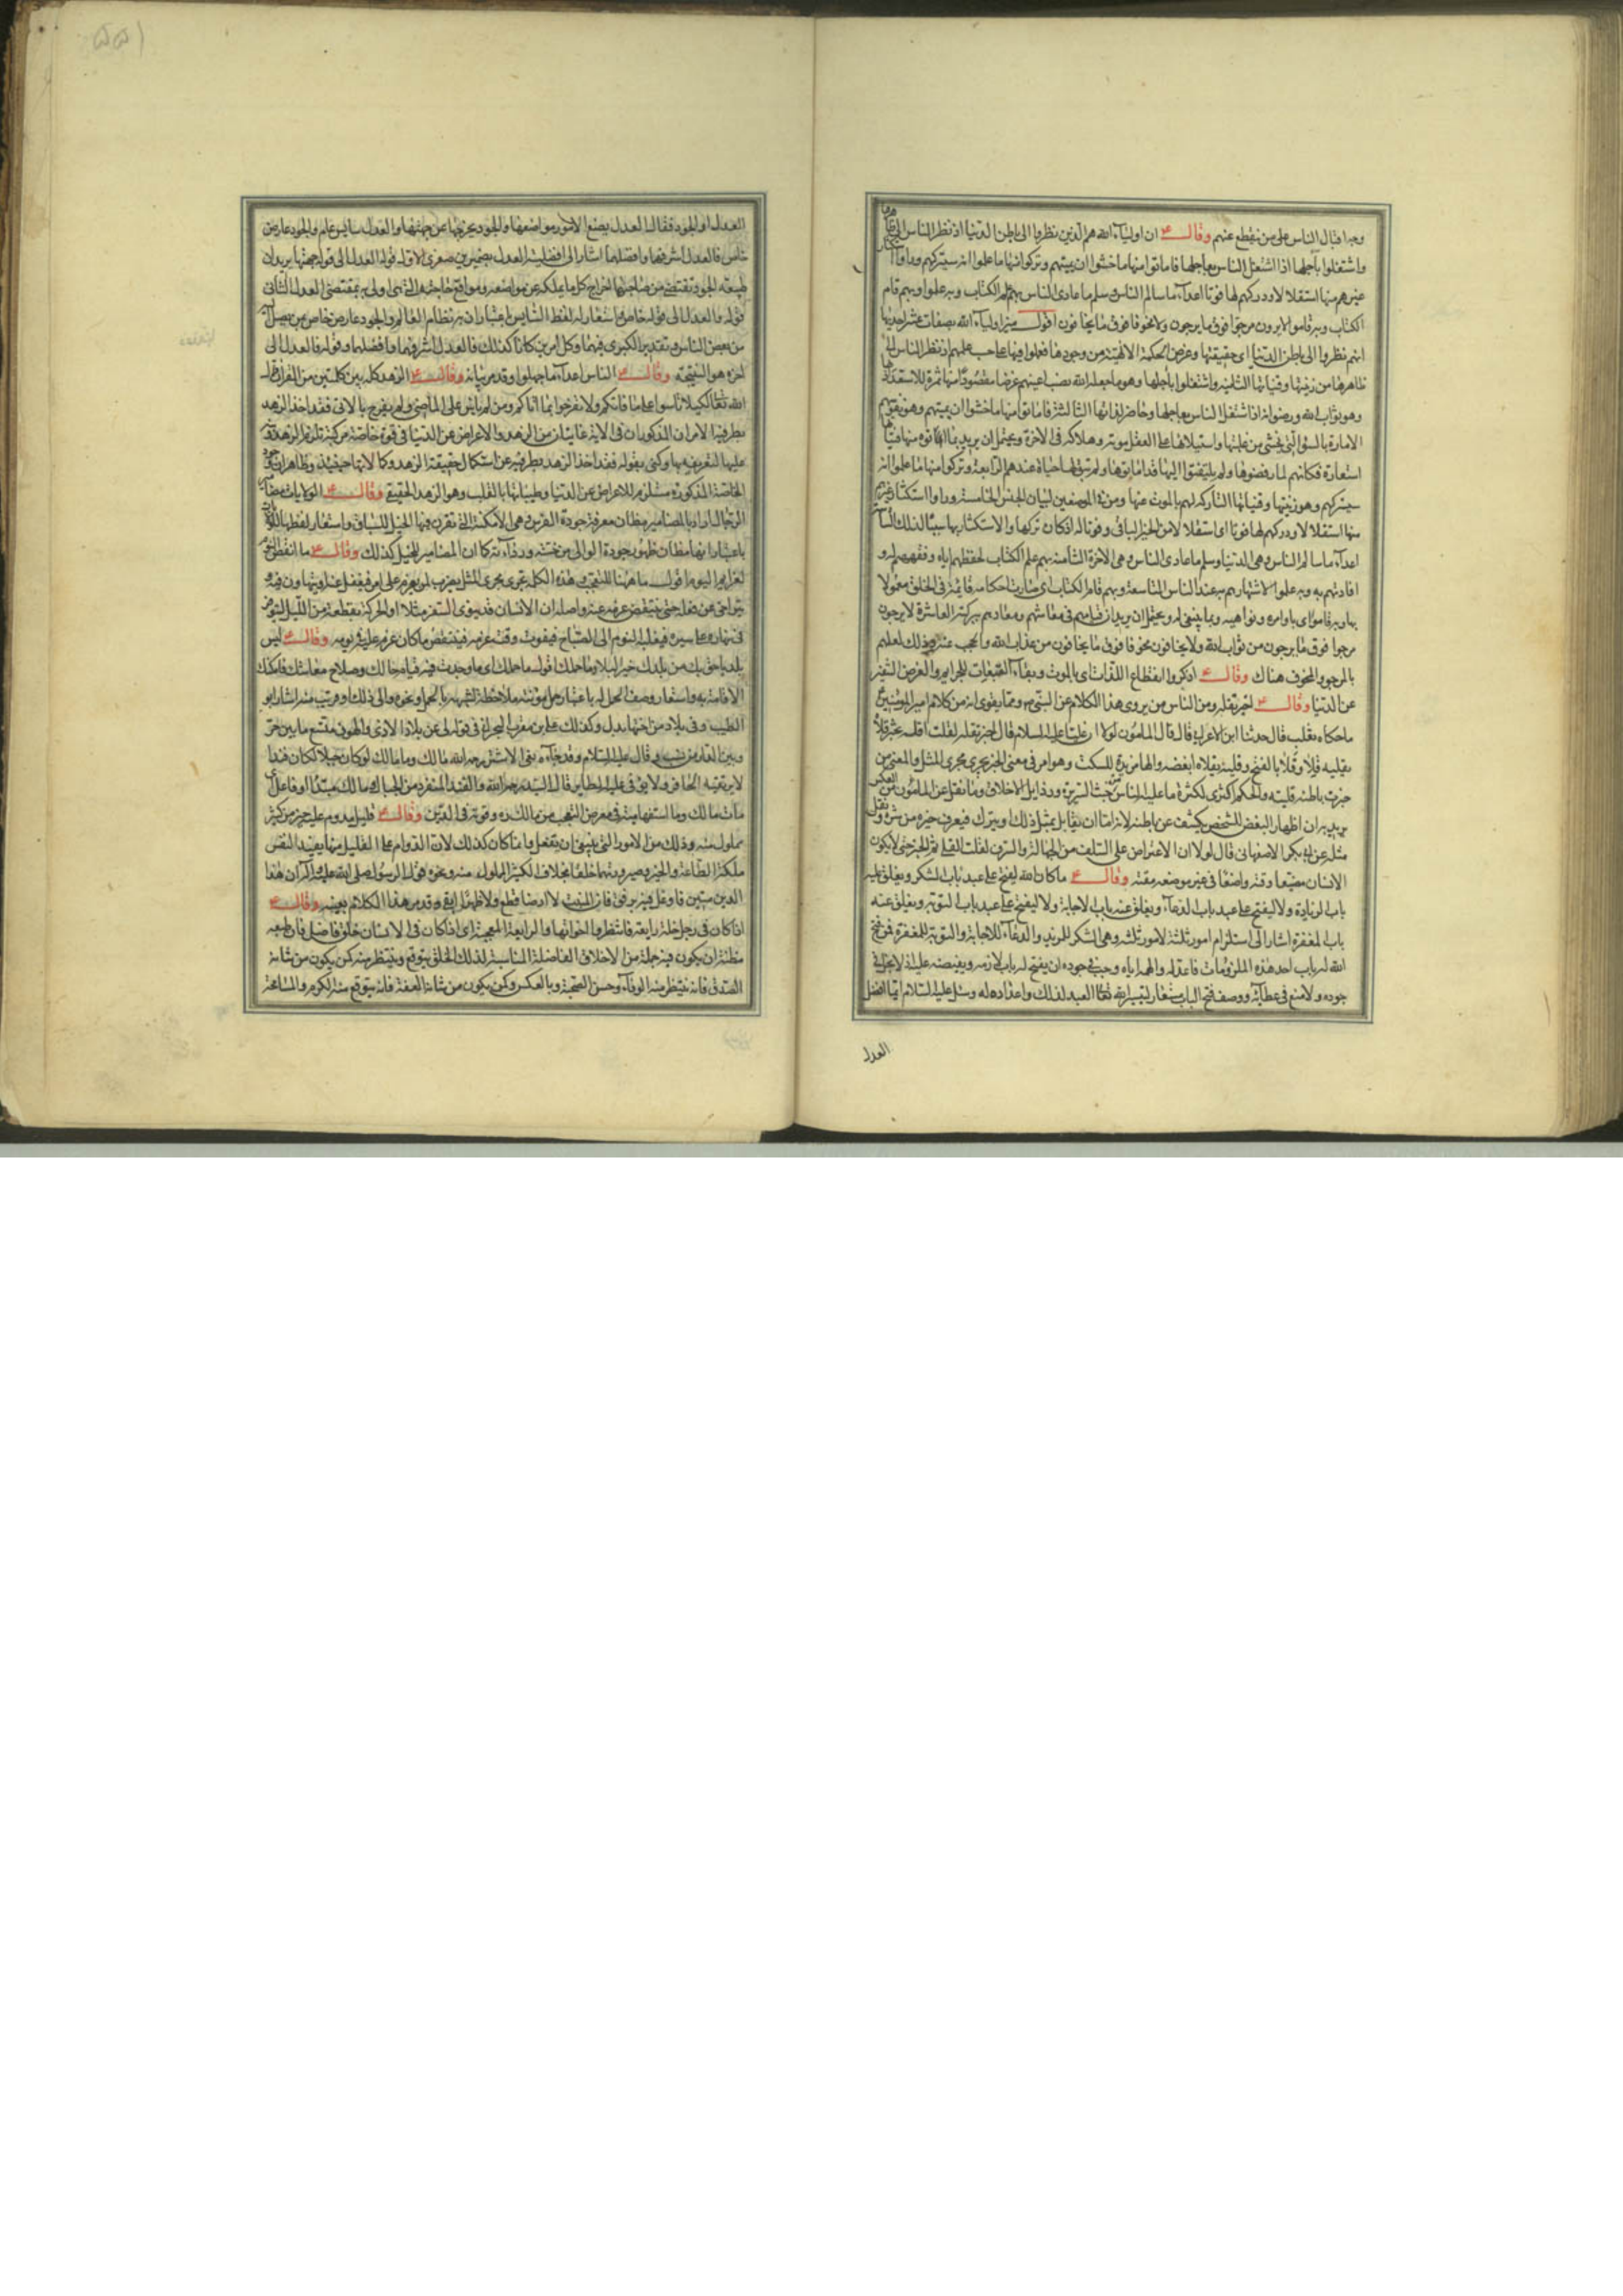 وجه اقبال الناس على من ينقطع عنهم وقال ع ان اولياء الله هم الذين نظروا الى باطن الدنيا اذ نظر الناس الى ظاهرها
واشتغلوا بآجلها اذا اشتغل الناس بعاجلها فاماتوا منها ما خشوا ان يميتهم وتركوا منها ما علموا انه سيتركهم وراوا استكثار
غيرهم منها استقلالا ودركهم لها فوتا اعداء ما سالم الناس وسلم ما عادى الناس بهم علم الكتاب وبه علموا وبهم قام
الكتاب وبه قاموا لا يرون مرجوا فوق ما يرجون ولا مخوفا فوق ما يخافون اقول ميز اولياء الله بصفات عشر احديها
انهم نظروا الى باطن الدنيا اى حقيقتها وغرض الحكمة الالهية من وجودها فعملوا فيها على حسب علمهم اذ نظر الناس الى
ظاهرها من زينتها وقنياتها الثانية واشتغلوا بآجلها وهو ما جعله الله نصب اعينهم غرضا مقصودا منها ثمرة للاستعداد
وهو ثواب الله ورضوانه اذا اشتغل الناس بعاجلها وحاضر لذاتها الثالثة فاماتوا منها ما خشوا ان يميتهم وهو نفوسهم
الامارة بالسوء التى يخشى من غلبتها واستيلائها على العقل موته وهلاكه فى الاخرة ويحتمل ان يريد بما اماتوه منها قنياتها
استعارة فكانهم لما رفضوها ولم يلتفتوا اليها قد اماتوها ولم تبق لها حياة عندهم الرابعة وتركوا منها ما علموا انه
سيتركهم وهو زينتها وقنياتها التاركة لهم بالموت عنها ومن للبيان الجنس الخامسة وراوا استكثار غيرهم
منها استقلالا ودركهم لها فوتا اى استقلالا من الخير الباقى وفوتا له اذ كان تركها والاستكثار بها سببا لذلك السادسة
اعداء ما سالم الناس وهى الدنيا وسلم ما عادى الناس وهى الاخرة الثامنة بهم علم الكتاب لحفظهم اياه وفقههم له و
افادتهم به وبه علموا لاشتهارهم به عند الناس التاسعة وبهم قام الكتاب اى صارت احكامه قائمة فى الخلق معمولا
بها وبه قاموا اى باوامره ونواهيه وبما ينبغى له ويحتمل ان يريد ان قيامهم فى معاشهم ومعادهم ببركته العاشرة لا يرجون
مرجوا فوق ما يرجون من ثواب الله ولا يخافون مخوفا فوق ما يخافون من عذاب الله والحجب عنه وذلك لعلمهم
بالمرجو والمخوف هناك وقال ع اذكروا انقطاع اللذات اى بالموت وبقاء التبعات للجرايم والغرض التنفير
عن الدنيا وقال ع اخبر تقله ومن الناس من يروى هذا الكلام عن النبى ص ومما يقوى انه من كلام امير المؤمنين
ما حكاه ثعلب قال حدثنا ابن الاعرابى قال قال المأمون لولا ان عليا عليه السلام قال اخبر تقله لقلت اقله تخبر قلاه
يقليه قلا وقلاء بالفتح وقلية يقلاه ابغضه والهاء مزيدة للسكت وهو امر فى معنى الخبر يجرى مجرى المثل والمعنى من
خبرت باطنه قليته والحكم اكثرى لكثرة ما عليه الناس من خبث السريرة ورذايل الاخلاق وما نقل عن المامون من العكس
يريد به ان اظهار البغض للشخص يكشف عن باطنه لانه اما ان يقابل بمثل ذلك او يترك فيعرف خيره من شره ونقل
مثله عن ابى بكر الاصفهانى قال لولا ان الاعتراض على السلف من الجهالة والسرف لقلت القلى ثم الخبر حتى لا يكون
الانسان مضيعا وقته واضعا فى غير موضعه مقته وقال ع ما كان الله ليفتح على عبد باب الشكر ويغلق عليه
باب الزيادة ولا ليفتح على عبد باب الدعاء ويغلق عنه باب الاجابة ولا ليفتح على عبد باب التوبة ويغلق عنه
باب المغفرة اشار الى استلزام امور ثلثة لامور ثلثة وهى الشكر للمزيد والدعاء للاجابة والتوبة للمغفرة فمن فتح
الله له باب احد هذه الملزومات فاعدله والهمه اياه وجب فى جوده ان يفتح له باب لازمه ويفيضه عليه اذ لا بخل فى
جوده ولا منع فى عطائه ووصف فتح الباب مستعار لتيسير الله تعالى العبد لذلك واعداده له وسئل عليه السلام ايما افضل
العدل
العدل او الجود فقال العدل يضع الامور مواضعها والجود يخرجها عن جهتها والعدل سايس عام والجود عارض
خاص فالعدل اشرفهما وافضلهما اشار الى افضلية العدل بضميرين صغرى الاول قوله العدل الى قوله جهتها يريد ان
طبيعة الجود تقتضى من صاحبها اخراج كل ما يملكه عن مواضعه ومواقع حاجته التى هى اولى به بمقتضى العدل الثانى
قوله والعدل الى قوله خاص استعار له لفظ السايس باعتبار ان به نظام العالم والجود عارض خاص بمن يصل اليه
من بعض الناس وتقدير الكبرى فيهما وكل امرين كانا كذلك فالعدل اشرفهما وافضلهما وقوله فالعدل الى
اخره هو النتيجة وقال ع الناس اعداء ما جهلوا وقد مر بيانه وقال ع الزهد كله بين كلمتين من القران قال
الله تعالى لكيلا تاسوا على ما فاتكم ولا تفرحوا بما اتاكم ومن لم ياس على الماضى ولم يفرح بالاتى فقد اخذ الزهد
بطرفيه الامران المذكوران فى الاية غايتان من الزهد والاعراض عن الدنيا فى قوة خاصة مركبة تلزم الزهد نبه
عليها لتعريفه بها وكنى بقوله فقد اخذ الزهد بطرفيه عن استكمال حقيقة الزهد وكمالاتها حينئذ وظاهر ان وجود
الخاصة المذكورة مستلزم للاعراض عن الدنيا وطيباتها بالقلب وهو الزهد الحقيقى وقال ع الولايات مضامير
الرجال اراد بالمضامير مظان معرفة جودة الفرس وهى الامكنة التى تقرن فيها الخيل للسباق واستعار لفظها للولايات
باعتبار انها مظان ظهور جودة الوالى من خسته ورداءته كما ان المضامير للخيل كذلك وقال ع ما انقض النوم
لعزايم اليوم اقول ما ههنا للتعجب وهذه الكلمة تجرى مجرى المثل يضرب لمن يعزم على امر فيغفل عنه او يتهاون فيه و
يتراخى عن فعله حتى ينتقض عزمه عنه واصله ان الانسان قد ينوى السفر مثلا او الحركة بقطعة من الليل ليتوفر
فى نهاره على سيره فيغلبه النوم الى الصباح فيفوت وقت عزمه فينتقض ما كان عزم عليه فى يومه وقال ع ليس
بلد باحق بك من بلدك خير البلاد ما حملك اقول ما حملك اى ما وجدت فيه قيام حالك وصلاح معاشك فامكنك
الاقامة به واستعار وصف الحمل له باعتبار حمل مؤنته ملاحظة لشبهه بالجمل ونحوه والى ذلك او قريب منه اشار ابو
الطيب وفى بلاد من اختها بدل وكذلك على بن مقرب البحرانى فى قوله لى عن بلاد الاذى والهون متسع ما بين حر
وبين الدار من نسب وقال عليه السلام وقد جاءه نعى الاشتر رحمه الله مالك وما مالك لو كان جبلا لكان فندا
لا يرتقيه الحافر ولا يوفى عليه الطاير قال السيد رحمه الله والفند المنفرد من الجبال ومالك مبتدأ او فاعل اى
مات مالك وما استفهامية فى معرض التعجب من مالك ره وقوته فى الدين وقال ع قليل مدوم عليه خير من كثير
مملول منه وذلك من الامور التى ينبغى ان يفعل وانما كان كذلك لان الدوام على القليل منها يفيد النفس
ملكة الطاعة والخير ويصير ديدنها خلقا بخلاف الكثير المملول منه ونحوه قول الرسول صلى الله عليه وآله ان هذا
الدين متين فاوغل فيه برفق فان المنبت لا ارضا قطع ولا ظهرا ابقى وقد مر هذا الكلام بعينه وقال ع
اذا كان فى رجل خلة رايعة فانتظروا اخواتها والرايعة المعجبة اى اذا كان فى الانسان خلق فاضل فان طبعه
مظنة ان يكون فيه جملة من الاخلاق الفاضلة المناسبة لذلك الخلق يتوقع وينتظر منه كمن يكون من شانه
الصدق فانه ينتظر منه الوفاء وحسن الصحبة وبالعكس وكمن يكون من شانه العفة فانه يتوقع منه الكرم والمسامحة